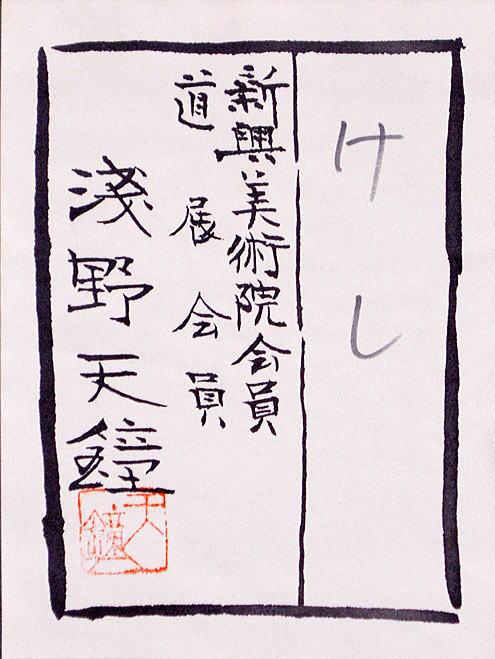 けし
新興美術院会員
道展会員
淺野天鐘
天鐘